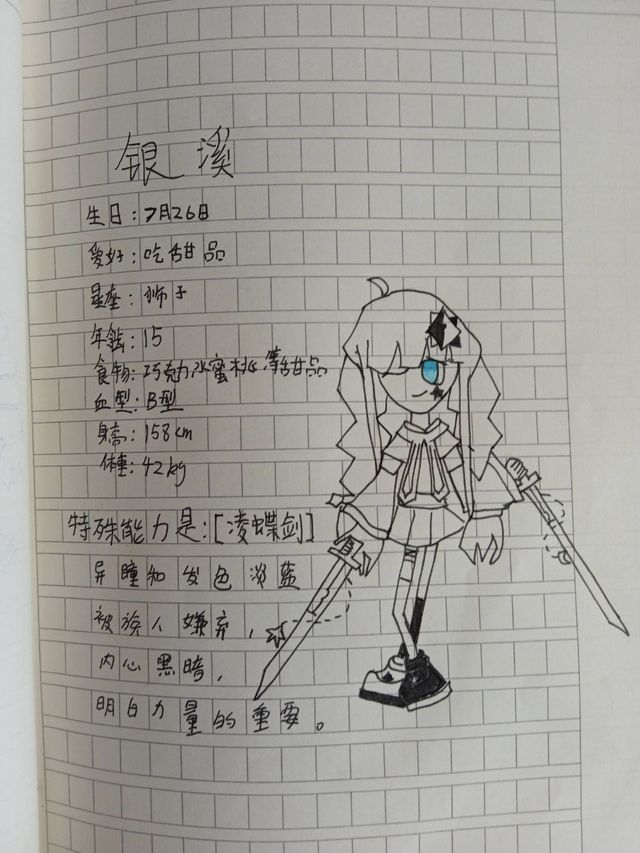 银溪
生日:7月26日
爱好:吃甜品
星座:狮子
年龄:15
食物:巧克力,水蜜桃,等甜品
血型:B型
身高:158cm
体重:42kg
特殊能力是:[凌蝶剑]
异瞳和发色淡蓝
被族人嫌弃,
内心黑暗,
明白力量的重要。